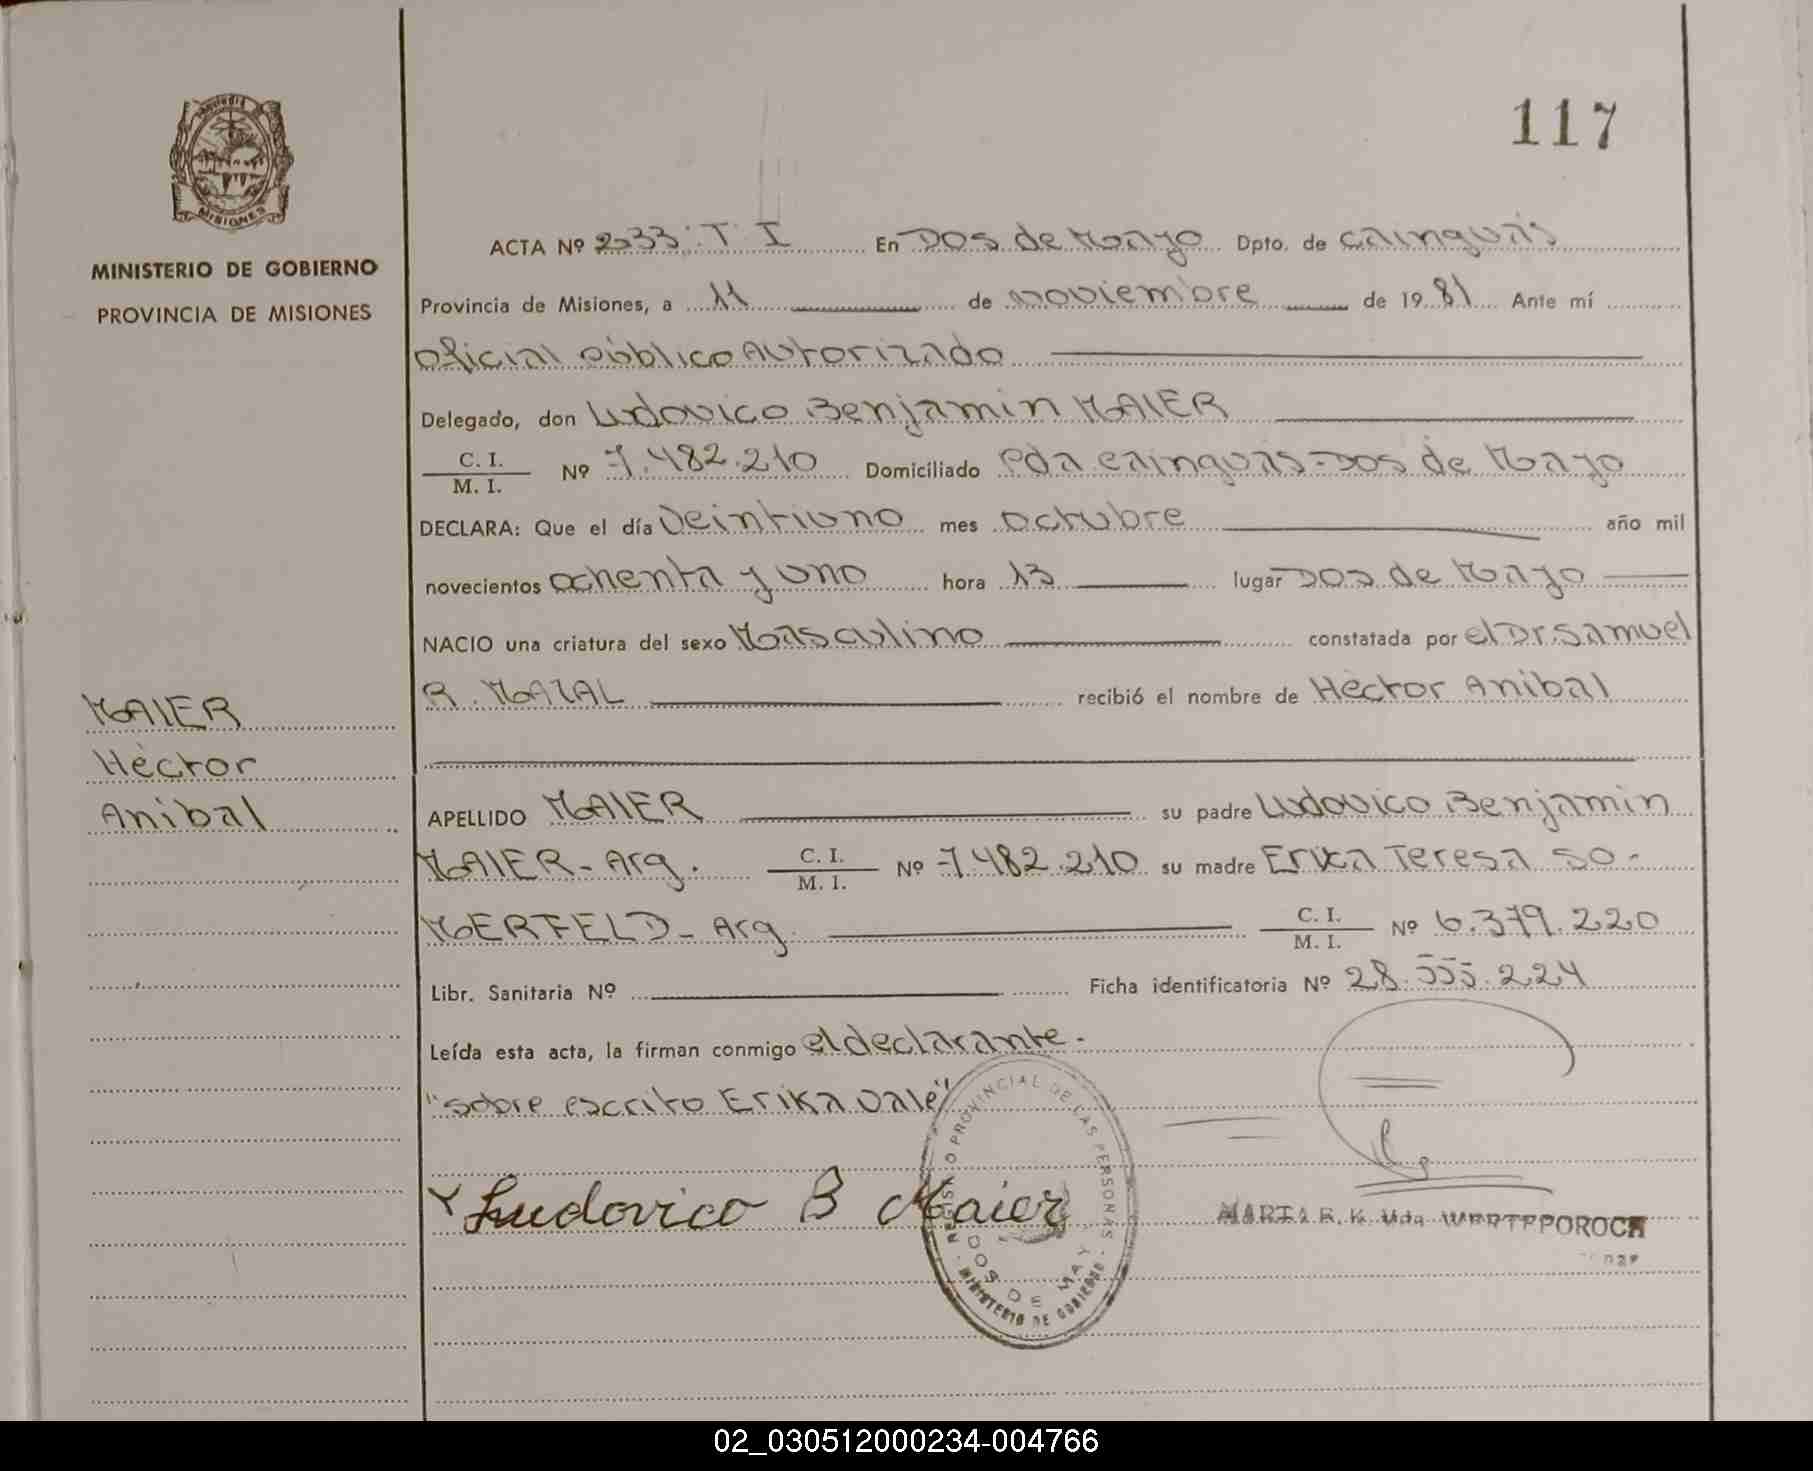 117
MISIONES
MINISTERIO DE GOBIERNO
PROVINCIA DE MISIONES
ACTA Nº 2533. T. I En Dos de Mayo Dpto. de Cainguás
Provincia de Misiones, a 11 de noviembre de 1981 Ante mí
Oficial Público Autorizado
Delegado, don Ludovico Benjamin MAIER
C. I. / M. I. Nº 7.482.210 Domiciliado Pda Cainguás-Dos de Mayo
DECLARA: Que el día Veintiuno mes octubre año mil
novecientos ochenta y uno hora 13 lugar Dos de Mayo
NACIO una criatura del sexo Masculino constatada por el Dr. Samuel
R. MAZAL recibió el nombre de Héctor Anibal
MAIER
Héctor
Anibal
APELLIDO MAIER su padre Ludovico Benjamin
MAIER - Arg. C. I. / M. I. Nº 7.482.210 su madre Erika Teresa SO-
MERFELD - Arg. C. I. / M. I. Nº 6.379.220
Libr. Sanitaria Nº Ficha identificatoria Nº 28.555.224
Leída esta acta, la firman conmigo el declarante.-
"sobre escrito Erika vale"
Ludovico B Maier
REGISTRO PROVINCIAL DE LAS PERSONAS
DOS DE MAYO
MINISTERIO DE GOBIERNO
MARIA R. K. Vda. WERTEPOROCH
02_030512000234-004766